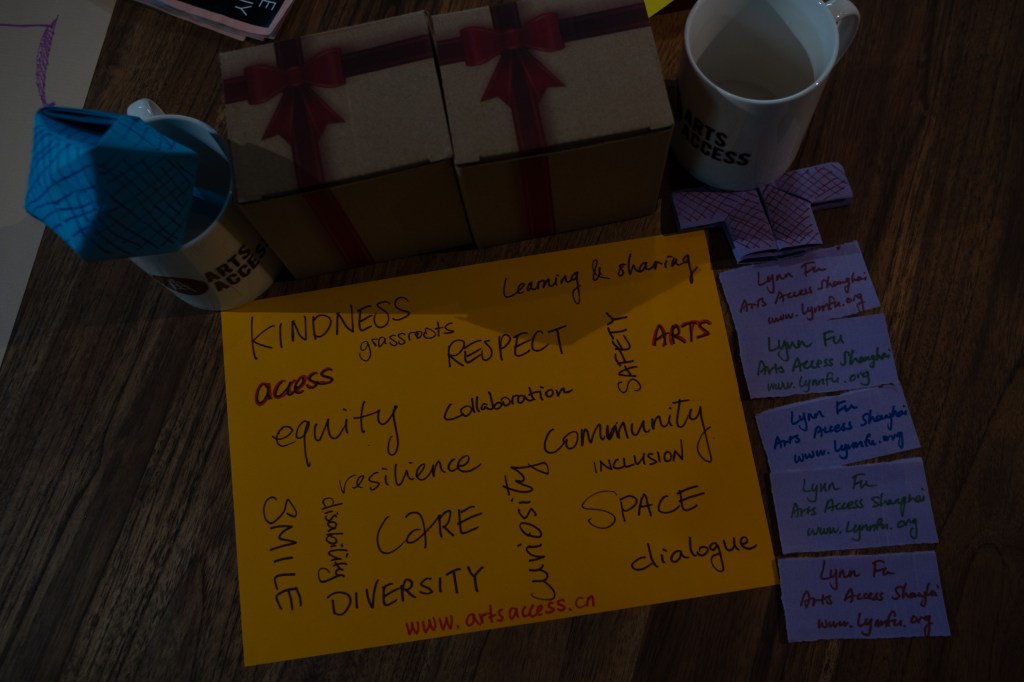 NY
ARTS
ACCESS
ARTS
ACCESS
Learning & sharing
KINDNESS
grassroots
RESPECT
SAFETY
ARTS
access
Collaboration
equity
community
INCLUSION
resilience
SMILE
disability
CARE
curiosity
SPACE
dialogue
DIVERSITY
www.artsaccess.cn
Lynn Fu
Arts Access Shanghai
www.lynnfu.org
Lynn Fu
Arts Access Shanghai
www.lynnfu.org
Lynn Fu
Arts Access Shanghai
www.lynnfu.org
Lynn Fu
Arts Access Shanghai
www.lynnfu.org
Lynn Fu
Arts Access Shanghai
www.lynnfu.org